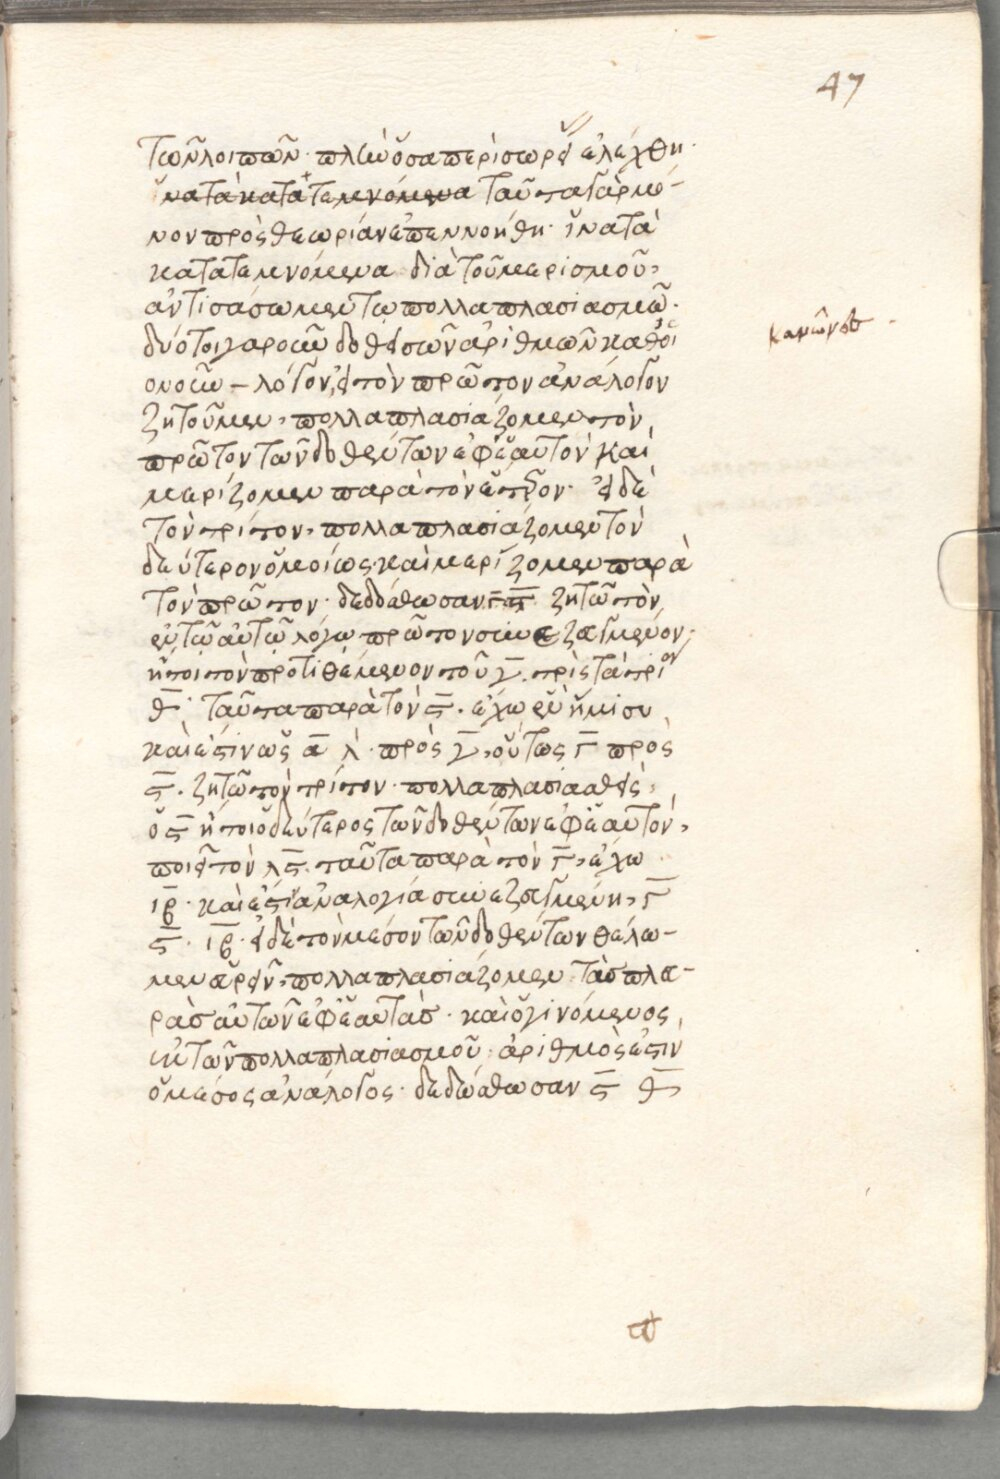 47
τῶν λοιπῶν· πλὴν ὅσα περὶ σωρεί ἐλέχθη·
ἵνα τὰ κατατεμνόμενα ταῦτα γὰρ μό-
νον πρὸς θεωρίαν ἐπεννοήθη· ἵνα τὰ
κατατεμνόμενα διὰ τοῦ μερισμοῦ,
ἀντισάσωμεν τῶ πολλαπλασιασμῶ·
δύο τοίγαροῦν δοθεισῶν ἀριθμῶν καθ' ὁ
ονοῦν - λόγον, εἰ τὸν πρῶτον ἀνάλογον
ζητοῦμεν, πολλαπλασιάζομεν τὸν
πρῶτον τῶν δοθέντων ἐφ' ἑαυτὸν καὶ
μερίζομεν παρὰ τὸν ἕτερον· εἰ δὲ
τὸν τρίτον, πολλαπλασιάζομεν τὸν
δεύτερον ὁμοίως· καὶ μερίζομεν παρὰ
τὸν πρῶτον· δεδόσθωσαν γ ς ζητῶ τὸν
ἐν τῶ αὐτῶ λόγω πρῶτον συνεζευγμένον,
ἤτοι τὸν προτιθέμενον τοῦ γ. τρὶς τὰ τρί
θ· ταῦτα παρὰ τὸν ς. ἔχω ἓν ἥμισυ
καὶ ἔστιν ὡς α λ· πρὸς γ, οὕτως γ πρὸς
ς. ζητῶ τὸν τρίτον· πολλαπλασιασθεὶς,
ὁ ς ἤτοι ὁ δεύτερος τῶν δοθέντων ἐφ' ἑαυτὸν,
ποιεῖ τὸν λς. ταῦτα παρὰ τὸν γ, ἔχω
ιβ· καὶ ἔστιν ἀναλογία συνεζευγμένη, γ
ς. ιβ. εἰ δὲ τὸν μέσον τῶν δοθέντων θέλω-
μεν εὑρεῖν, πολλαπλασιάζομεν τὰς πλευ-
ρὰς αὐτῶν ἐφ' ἑαυτάς· καὶ ὁ γινόμενος
ἐκ τῶν πολλαπλασιασμοῦ ἀριθμὸς ἐστιν
ὁ μέσος ἀνάλογος· δεδόσθωσαν ς θ